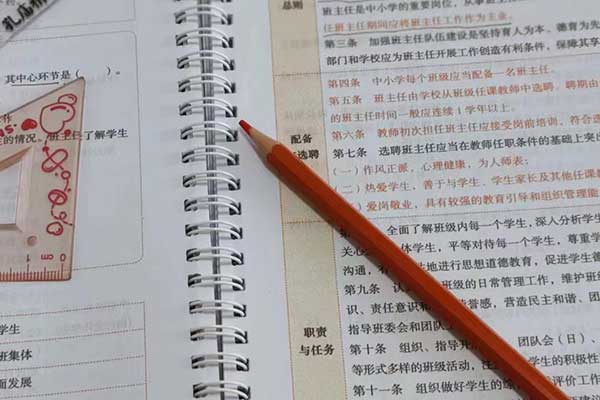 孔庙祈福
其中心环节是( )。
的情况。班主任了解学生
学生
班集体
面发展
总则
配备
选聘
职责
与任务
班主任是中小学的重要岗位,从事班主
任班主任期间应将班主任工作作为主业。
第三条 加强班主任队伍建设是坚持育人为本、德育为先
部门和学校应为班主任开展工作创造有利条件,保障其享
第四条 中小学每个班级应当配备一名班主任。
第五条 班主任由学校从班级任课教师中选聘,聘期由
的班主任时间一般应连续1学年以上。
第六条 教师初次担任班主任应接受岗前培训,符合选
第七条 选聘班主任应当在教师任职条件的基础上突出
(一)作风正派,心理健康,为人师表;
(二)热爱学生,善于与学生、学生家长及其他任课教
)爱岗敬业,具有较强的教育引导和组织管理能
全面了解班级内每一个学生,深入分析学生
关心 体学生,平等对待每一个学生,尊重学
沟通,有 地进行思想道德教育,促进学生德
第九条 认 班级的日常管理工作,维护班
识、责任意识和 誉感,营造民主和谐、团
指导班委会和团队
第十条 组织、指导开 团队会(日)、
等形式多样的班级活动,注 学生的积极性
第十一条 组织做好学生的综 评价工作
0 1